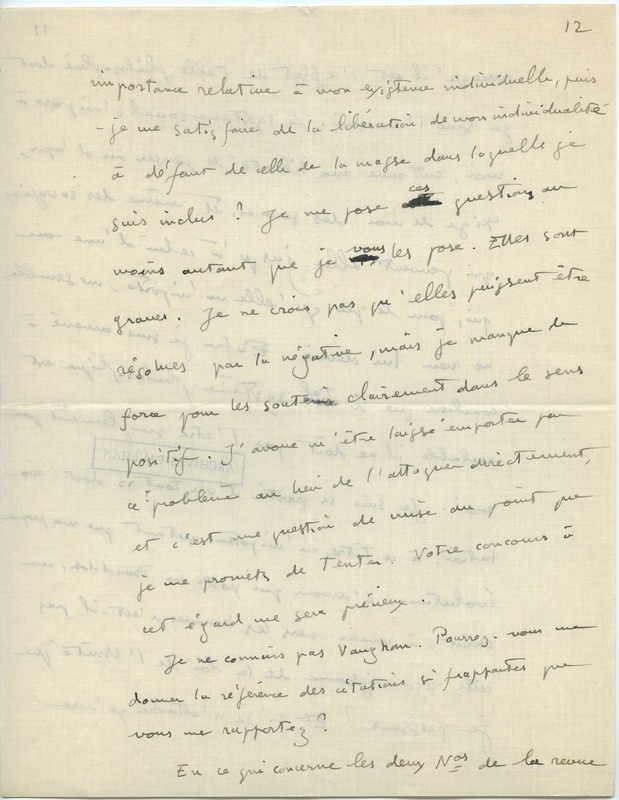 12
importance relative à mon existence individuelle, puis
- je me satisfaire de la libération de mon individualité
à défaut de celle de la masse dans laquelle je
suis inclus ? Je me pose ces questions au
moins autant que je vous les pose. Elles sont
graves. Je ne crois pas qu'elles puissent être
résolues par la négative, mais je manque de
force pour les soutenir clairement dans le sens
positif. J'avoue m'être laissé emporter par
ce problème au lieu de l'attaquer directement,
et c'est une question de mise au point que
je me promets de tenter. Votre concours à
cet égard me sera précieux.
Je ne connais pas Vaughan. Pourrez-vous me
donner la référence des citations si frappantes que
vous me rapportez ?
En ce qui concerne les deux Nos de la revue